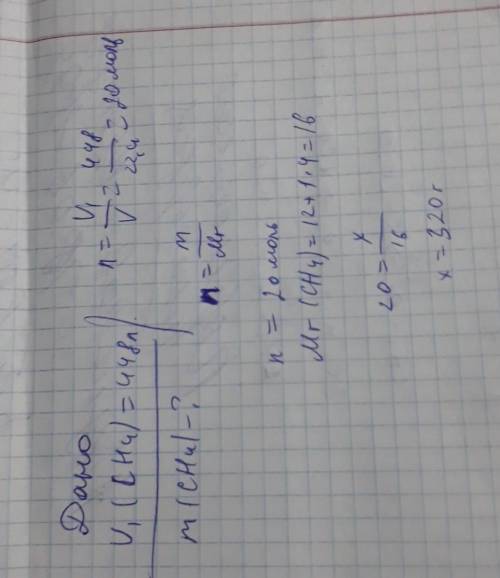 Дано
V₁(CH₄) = 448л
m(CH₄) - ?
n = V₁/V = 448/22,4 = 20 моль
n = m/Mr
n = 20 моль
Mr(CH₄) = 12+1·4 = 16
20 = x/16
x = 320 г